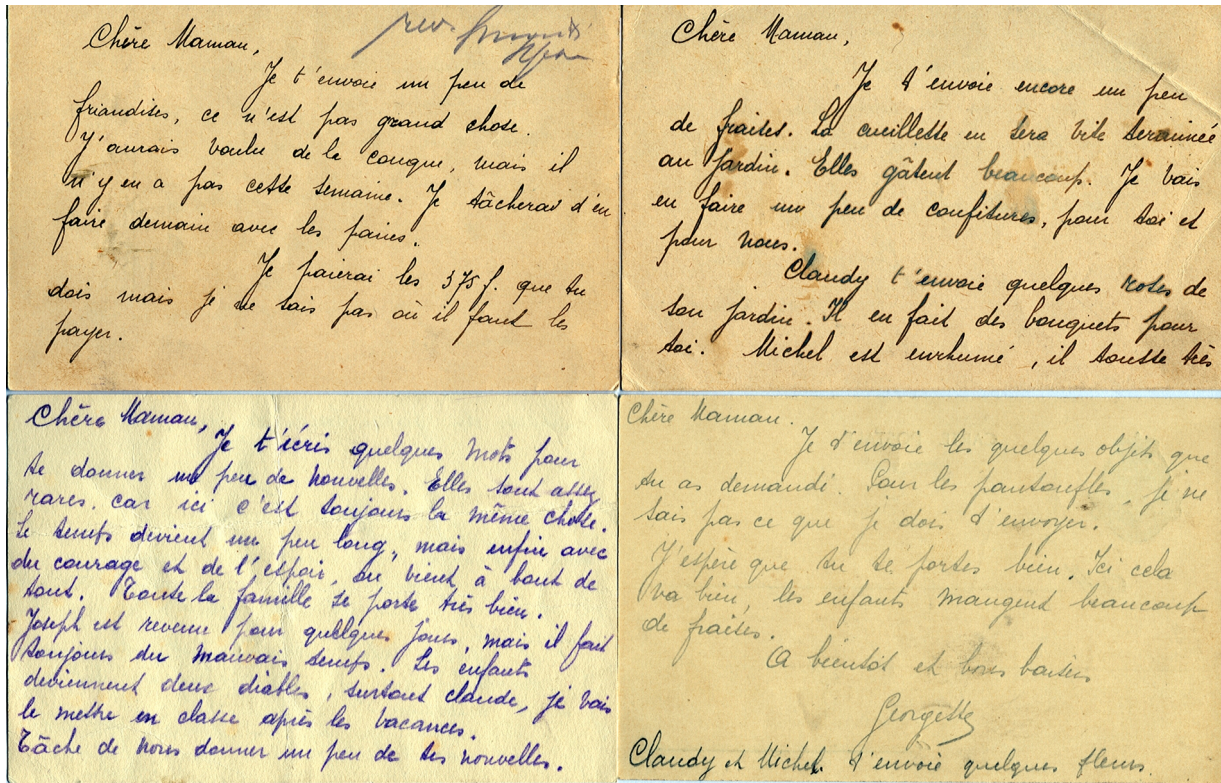 Chère Maman,
Je t'envoie un peu de
friandises, ce n'est pas grand chose.
J'aurais voulu de la couque, mais il
n'y en a pas cette semaine. Je tâcherai d'en
faire demain avec les pains.
Je paierai les 375 f. que tu
dois mais je ne sais pas où il faut les
payer.
Chère Maman,
Je t'envoie encore un peu
de fraises. La cueillette en sera vite terminée
au jardin. Elles gâtent beaucoup. Je vais
en faire un peu de confitures, pour toi et
pour nous.
Claudy t'envoie quelques roses de
son jardin. Il en fait des bouquets pour
toi. Michel est enrhumé, il tousse très
Chère Maman,
Je t'écris quelques mots pour
te donner un peu de nouvelles. Elles sont assez
rares, car ici c'est toujours la même chose.
Le temps devient un peu long, mais enfin avec
du courage et de l'espoir, on vient à bout de
tout. Toute la famille se porte très bien.
Joseph est revenu pour quelques jours, mais il fait
toujours du mauvais temps. Les enfants
deviennent deux diables, surtout Claude, je vais
le mettre en classe après les vacances.
Tâche de nous donner un peu de tes nouvelles.
Chère Maman.
Je t'envoie les quelques objets que
tu as demandé. Pour les pantoufles, je ne
sais pas ce que je dois t'envoyer.
J'espère que tu te portes bien. Ici cela
va bien, les enfants mangent beaucoup
de fraises.
A bientôt et bons baisers
Georgette
Claudy et Michel t'envoie quelques fleurs.